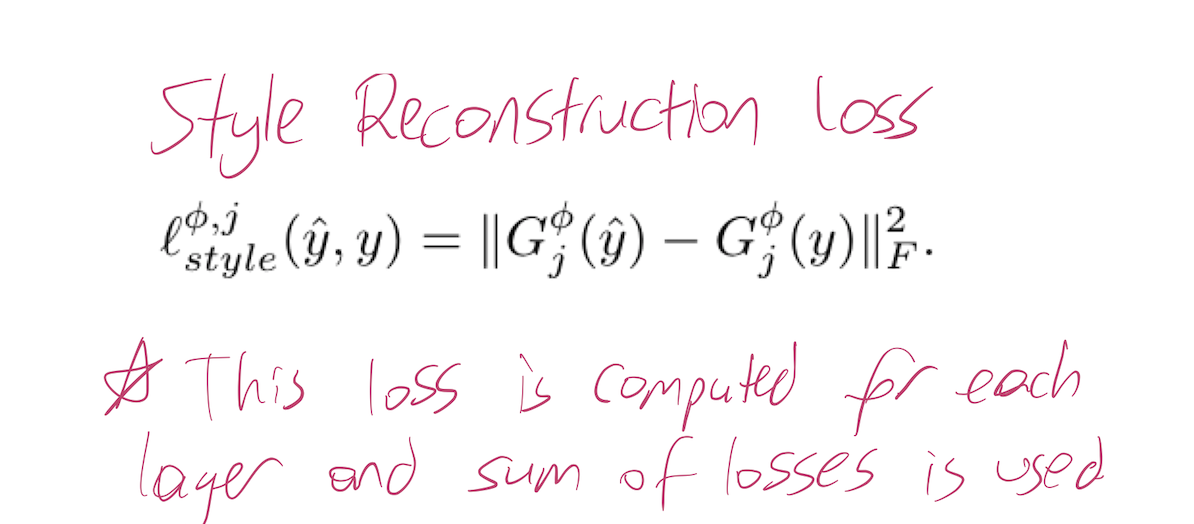 Style Reconstruction loss
ℓ^{ϕ,j}_{style}(ŷ, y) = ‖G^ϕ_j(ŷ) − G^ϕ_j(y)‖²_F.
☆ This loss is computed for each
layer and sum of losses is used